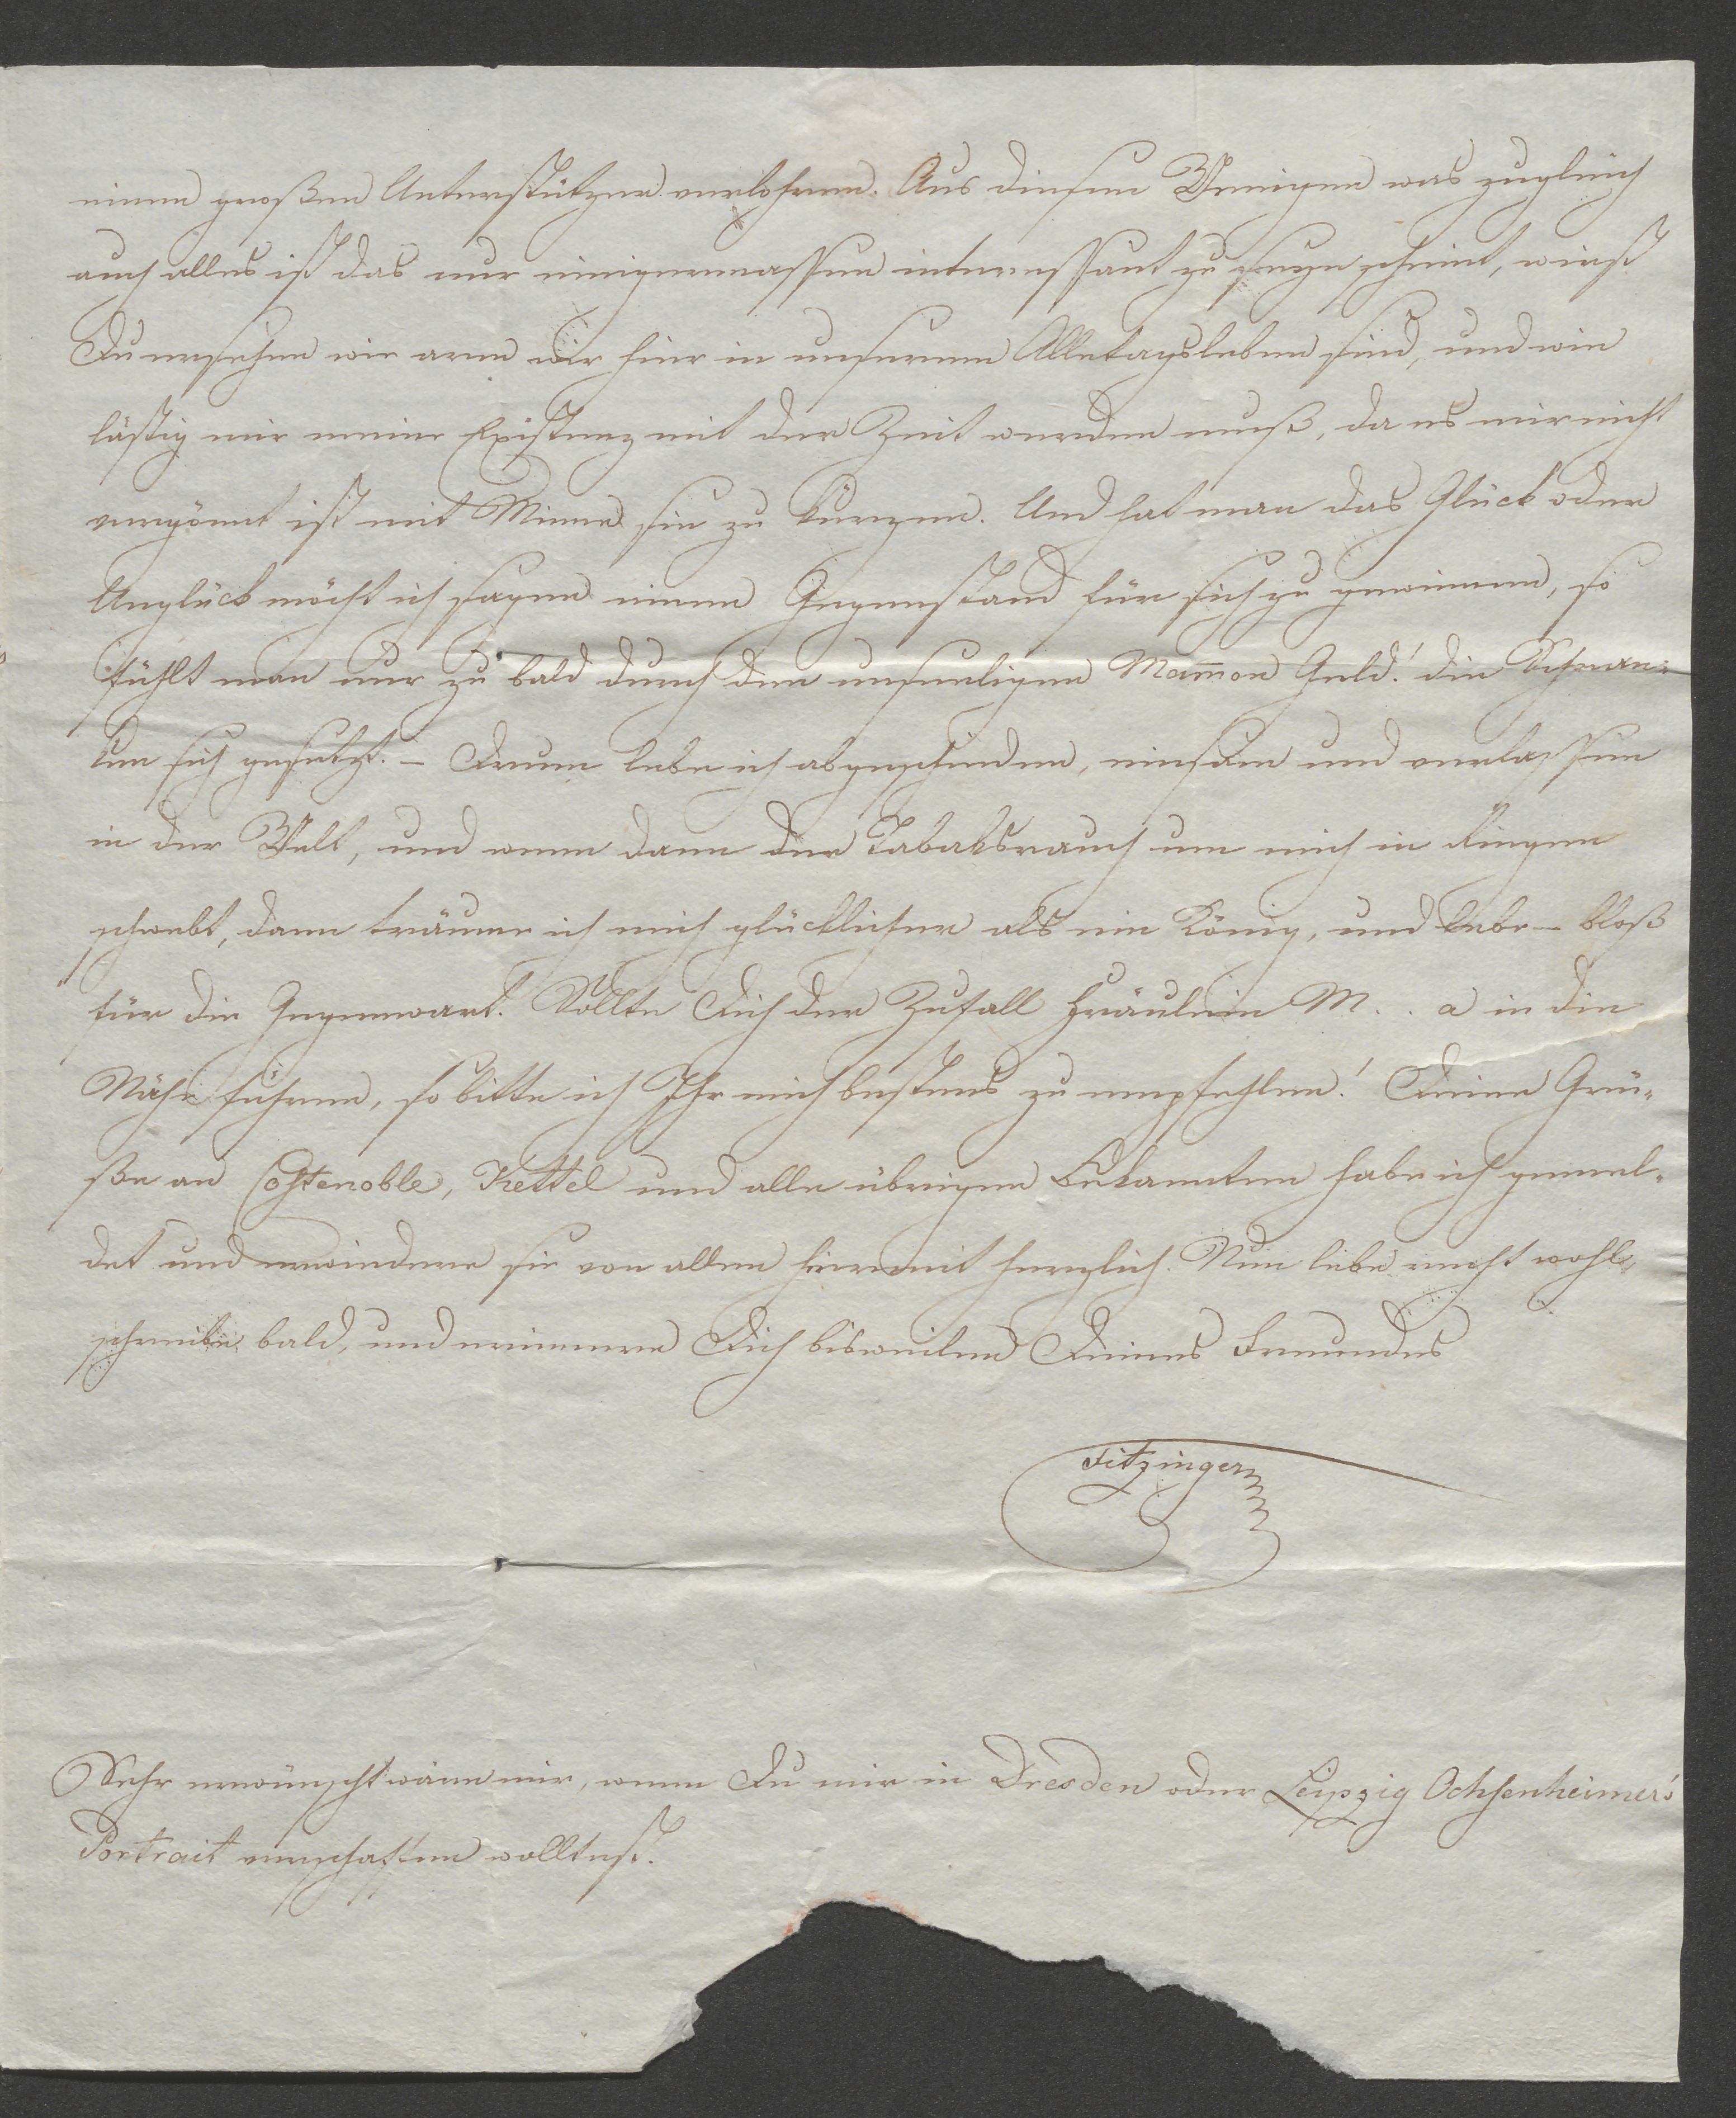 einen großen Unterstützer verlohren. Aus diesem Wenigen was zugleich
auch alles ist das nur einigermassen interessant zu seyn scheint, wirst
Du ersehen wie arm wir hier in unserem Alletagsleben sind, und wie
lästig mir meine Existenz mit der Zeit werden muß, da es mir nicht
vergönnt ist mit Minne sie zu kürzen. Und hat man das Glück oder
Unglück möcht ich sagen einen Gegenstand für sich zu gewinnen, so
fühlt man nur zu bald durch den unseeligen Mam̅on Geld! die Schran-
ken sich gesetzt. – Drum lebe ich abgeschieden, einsam und verlassen
in der Welt, und wenn dann der Tabaksrauch um mich in Ringen
schwebt, dann träume ich mich glücklicher als ein König, und lebe – bloß
für die Gegenwart. Sollte Dich der Zufall Fräulein M . . a in die
Nähe führen, so bitte ich Ihr mich bestens zu empfehlen! Deine Grü-
ße an Costenoble, Kettel und alle übrigen Bekannten habe ich gemel-
det und erwiedere sie von allen hiermit herzlich. Nun lebe recht wohl,
schreibe bald, und erinnere Dich bisweilen Deines Freundes
Fitzinger
Sehr erwünscht wäre mir, wenn Du mir in Dresden oder Leipzig Ochsenheimer's
Portrait verschaffen wolltest.